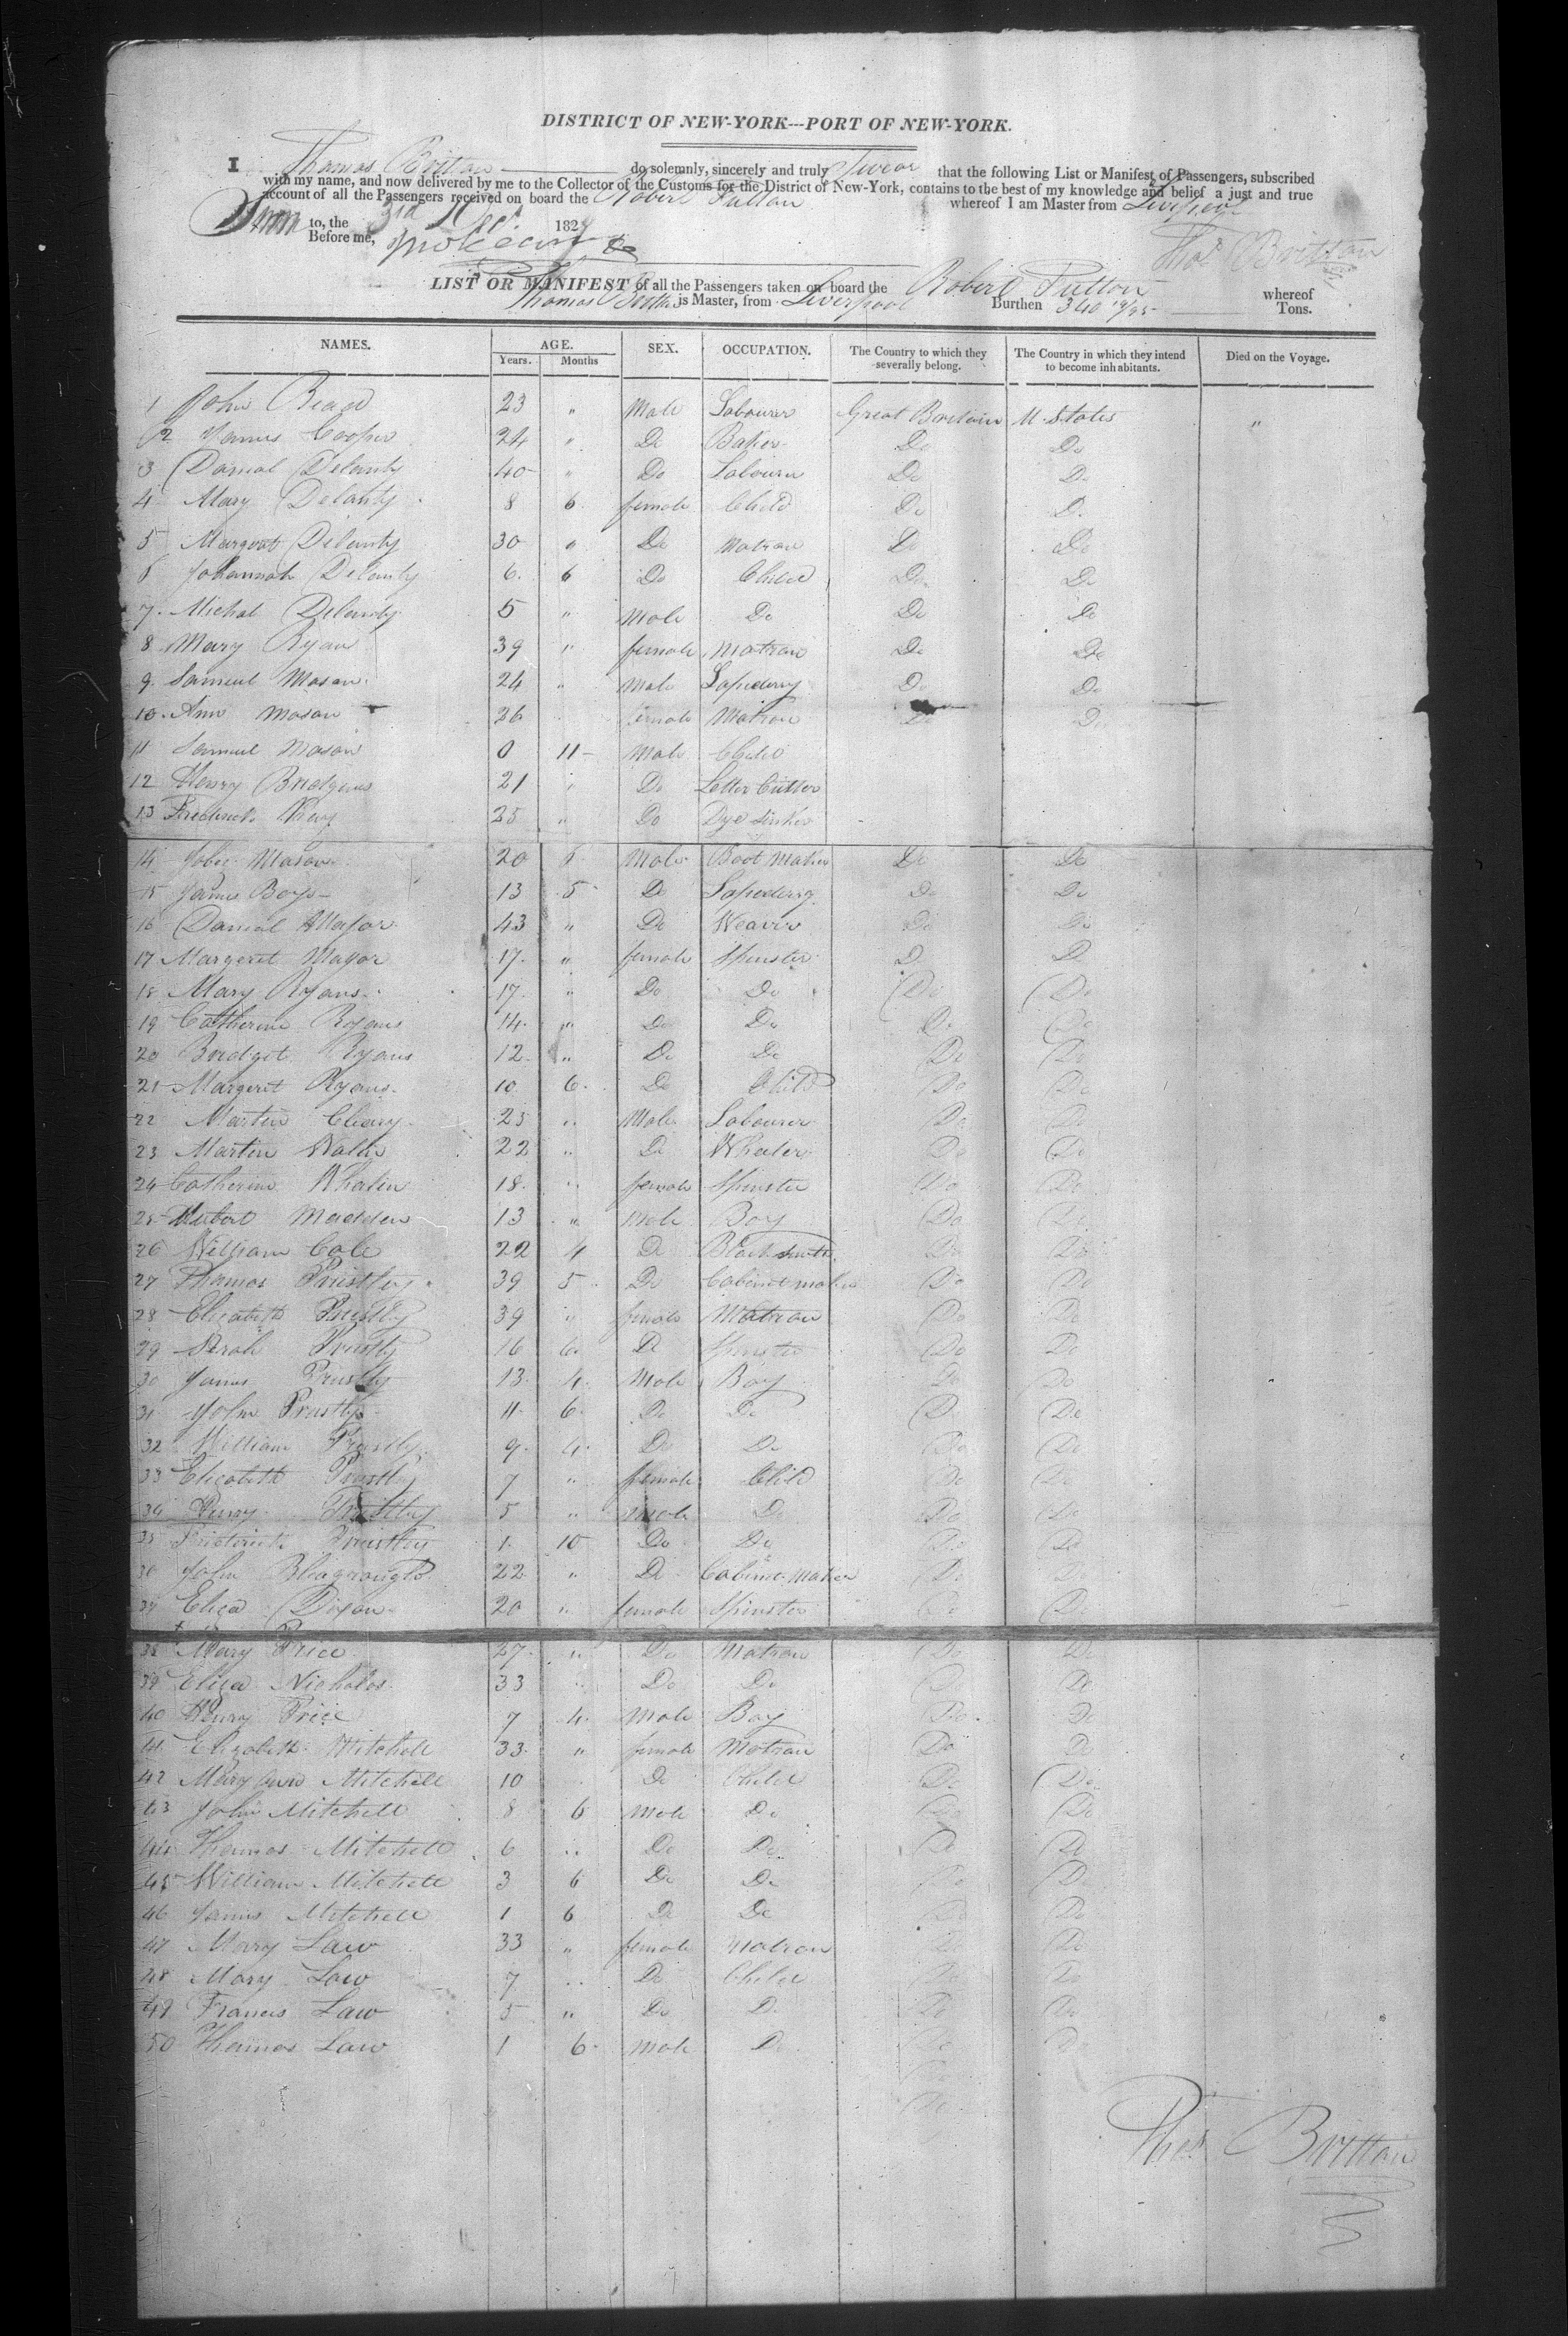 DISTRICT OF NEW-YORK---PORT OF NEW-YORK.
I Thomas Britton do solemnly, sincerely and truly Swear that the following List or Manifest of Passengers, subscribed
with my name, and now delivered by me to the Collector of the Customs for the District of New-York, contains to the best of my knowledge and belief a just and true
account of all the Passengers received on board the Robert Fulton whereof I am Master from Liverpool
Sworn to, the 3rd 182
Before me,
Thos Britton
LIST OR MANIFEST of all the Passengers taken on board the Robert Fulton whereof
Thomas is Master, from Liverpool Burthen 340 Tons.
NAMES. AGE. SEX. OCCUPATION. The Country to which they severally belong. The Country in which they intend to become inhabitants. Died on the Voyage.
Years. Months
1 John Read 23 " Male Labourer Great Britain U. States "
2 James Cooper 24 " Do Baker Do Do
3 Danial Delanty 40 " Do Labourer Do Do
4 Mary Delanty 8 6 female Child Do Do
5 Margret Delanty 30 " Do Matron Do Do
6 Johannah Delanty 6 6 Do Child Do Do
7 Michal Delanty 5 " Male Do Do Do
8 Mary Ryan 39 " female Matron Do Do
9 Samuel Mason 24 " Male Lapedery Do Do
10 Ann Mason 26 female Matron Do Do
11 Samuel Mason 0 11 Male Child
12 Henry Bridgens 21 " Do Letter Cutter
13 Frederick 25 " Do Dye Sinker
14 Mason 20 Male Boot Maker Do Do
15 James Boys 13 5 Do Lapedery Do Do
16 Danial Major 43 " Do Weaver Do Do
17 Margeret Major 17 " female Spinster Do Do
18 Mary Ryans 17 " Do Do Do Do
19 Catherine Ryans 14 " Do Do Do Do
20 Bridget Ryans 12 " Do Do Do Do
21 Margeret Ryans 10 6 Do Child Do Do
22 Martin Cleary 25 " Male Labourer Do Do
23 Martin 22 " Do Do Do
24 Catherine Whelin 18 " female Spinster Do Do
25 Hubert Madden 13 " Male Boy Do Do
26 William Cole 22 4 Do Blacksmith Do Do
27 Thomas Priestley 39 5 Do Cabinet maker Do Do
28 Elizabeth Priestly 39 " female Matron Do Do
29 Sarah Priestly 16 6 Do Spinster Do Do
30 James Priestly 13 4 Male Boy Do Do
31 John Priestly 11 6 Do Do Do Do
32 William Priestly 9 4 Do Do Do Do
33 Elizabeth Priestly 7 " female Child Do Do
34 Henry Priestley 5 " male Do Do Do
35 Priestley 1 10 Do Do Do Do
36 John 22 " Do Cabinet Maker Do Do
37 Eliza Dixon 20 " female Spinster Do Do
38 Mary Price 27 " Do Matron Do Do
39 Eliza Nicholos 33 " Do Do Do Do
40 Henry Price 7 4 Male Boy Do Do
41 Elizabeth Mitchell 33 " female Matron Do Do
42 Mary Ann Mitchell 10 Do Child Do Do
43 John Mitchell 8 6 Male Do Do Do
44 Thomas Mitchell 6 " Do Do Do Do
45 William Mitchell 3 6 Do Do Do Do
46 James Mitchell 1 6 Do Do Do Do
47 Mary Law 33 " female Matron Do Do
48 Mary Law 7 " Do Child Do Do
49 Frances Law 5 " Do Do Do Do
50 Thomas Law 1 6 Male Do Do Do
Thos Britton